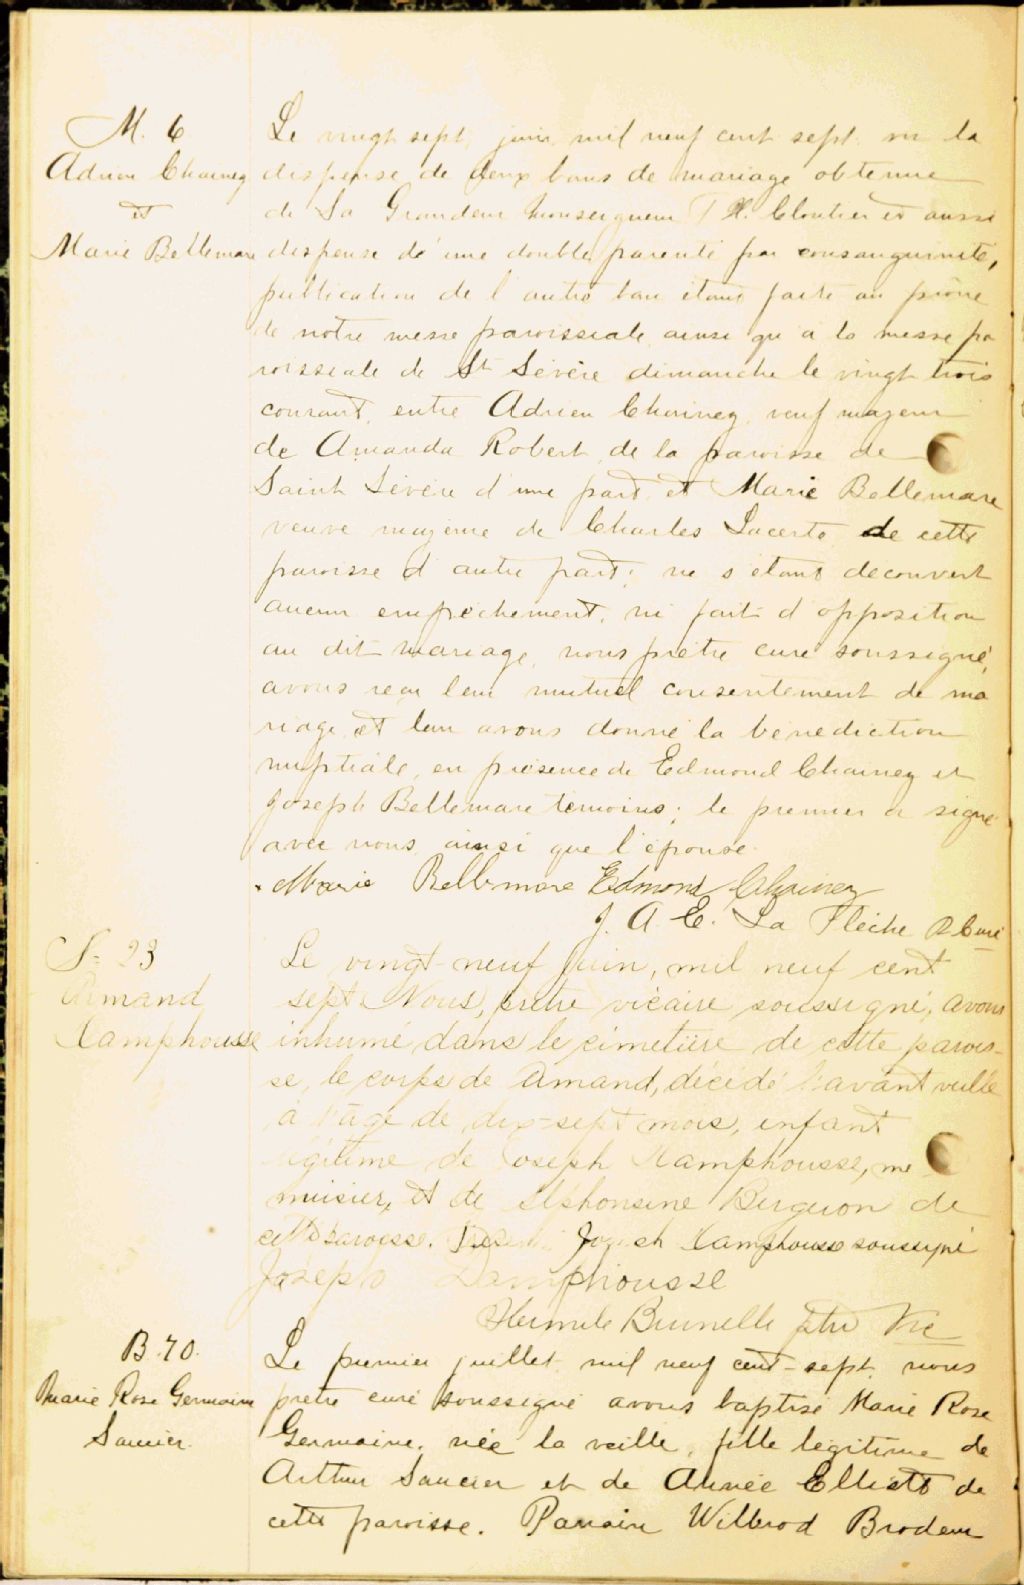 M. 6
Adrien Chainey
et
Marie Bellemare
Le vingt sept juin mil neuf cent sept, vu la
dispense de deux bans de mariage obtenue
de Sa Grandeur Monseigneur F X. Cloutier et aussi
dispense de une double parenté par consanguinité,
publication de l'autre ban étant faite au prône
de notre messe paroissiale ainsi qu'à la messe pa
roissiale de St Sévère dimanche le vingt trois
courant, entre Adrien Chainey, veuf majeur
de Amanda Robert de la paroisse de
Saint Sévère d'une part et Marie Bellemare
veuve majeure de Charles Lacerte de cette
paroisse d'autre part; ne s'étant découvert
aucun empêchement, ni fait d'opposition
au dit mariage, nous prêtre curé soussigné,
avons reçu leur mutuel consentement de ma
riage et leur avons donné la bénédiction
nuptiale, en présence de Edmond Chainey et
Joseph Bellemare témoins; le premier a signé
avec nous ainsi que l'épouse.
Marie Bellemare Edmond Chainey
J. A. E. La Flèche P Curé
S. 23
Armand
Damphousse
Le vingt-neuf Juin, mil neuf cent
sept Nous, prêtre vicaire soussigné, avons
inhumé dans le cimetière de cette parois-
se, le corps de Amand, décédé l'avant veille
à l'âge de dix-sept mois, enfant
légitime de Joseph Damphousse, me
nuisier, et de Alphonsine Bergeron de
cette paroisse. Présent Joseph Damphousse soussigné
Joseph Damphousse
Hermile Brunelle ptre Vic
B. 70.
Marie Rose Germaine
Saucier.
Le premier juillet mil neuf cent-sept, nous
prêtre curé soussigné avons baptisé Marie Rose
Germaine, née la veille, fille légitime de
Arthur Saucier et de Aurée Elliott de
cette paroisse. Parrain Wilbrod Brodeur